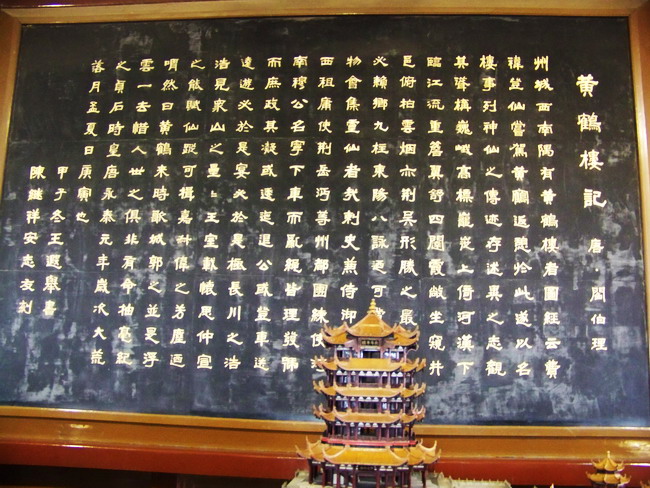 黄鶴樓記
唐·閻伯理
州城西南隅有黄鶴樓者圖經云費
禕登仙嘗駕黄鶴返憩於此遂以名
樓事列神仙之傳迹存述異之志觀
其聳構巍峨高標巃嵸上倚河漢下
臨江流重簷翼舒四闥霞敞坐窺井
邑俯拍雲烟亦荆吴形勝之最
必賴鄉九柱東陽八詠迺可賞
物會集靈仙者矣刺史兼侍御
西租庸使荆岳沔等州都團練使
南穆公名寧下車而亂繩皆理發號
而庶政其凝或逶迤退公或登車送
遠遊必於是宴必於是極長川之浩
浩見衆山之壘壘王室載懷思仲宣
之能賦仙蹤可揖嘉叔偉之芳塵迺
喟然曰黄鶴來時歌城郭之並是浮
雲一去惜人世之俱非有命抽毫紀
之貞石時皇唐永泰元年歲次大荒
落月孟夏日庚寅也
甲子冬王遐舉書
陳繼祥安忠友刻